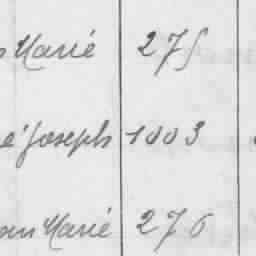 Marié 275
é Joseph 1003
an Marié 276